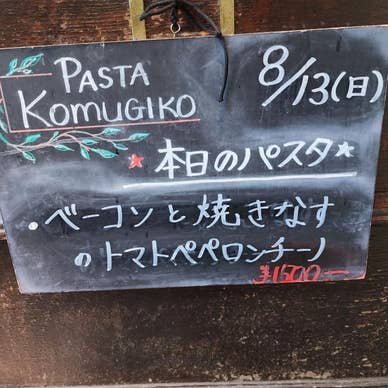 PASTA
KOMUGIKO
8/13(日)
★本日のパスタ★
・ベーコンと焼きなす
のトマトペペロンチーノ
¥1500ー